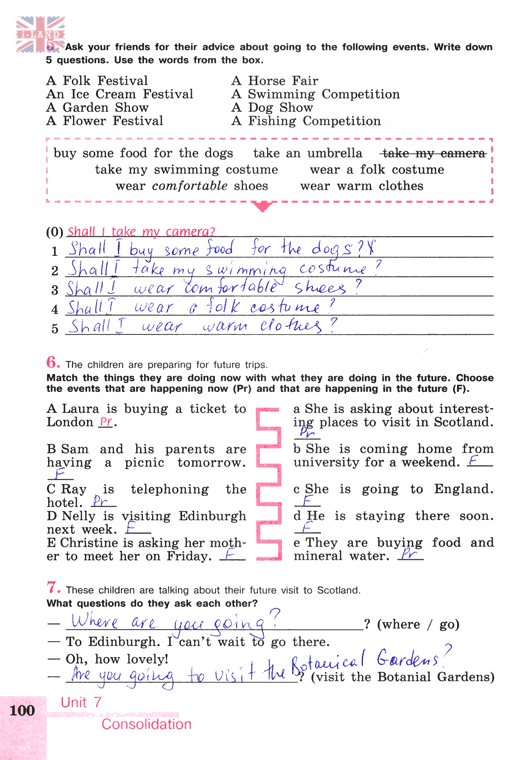 I-LAND
5. Ask your friends for their advice about going to the following events. Write down
5 questions. Use the words from the box.
A Folk Festival A Horse Fair
An Ice Cream Festival A Swimming Competition
A Garden Show A Dog Show
A Flower Festival A Fishing Competition
buy some food for the dogs take an umbrella take my camera
take my swimming costume wear a folk costume
wear comfortable shoes wear warm clothes
(0) Shall I take my camera?
1 Shall I buy some food for the dogs?
2 Shall I take my swimming costume?
3 Shall I wear comfortable shoes?
4 Shall I wear a folk costume?
5 Shall I wear warm clothes?
6. The children are preparing for future trips.
Match the things they are doing now with what they are doing in the future. Choose
the events that are happening now (Pr) and that are happening in the future (F).
A Laura is buying a ticket to
London Pr.
B Sam and his parents are
having a picnic tomorrow.
F
C Ray is telephoning the
hotel. Pr
D Nelly is visiting Edinburgh
next week. F
E Christine is asking her moth-
er to meet her on Friday. F
a She is asking about interest-
ing places to visit in Scotland.
Pr
b She is coming home from
university for a weekend. F
c She is going to England.
F
d He is staying there soon.
F
e They are buying food and
mineral water. Pr
7. These children are talking about their future visit to Scotland.
What questions do they ask each other?
— Where are you going? ? (where / go)
— To Edinburgh. I can't wait to go there.
— Oh, how lovely!
— Are you going to visit the Botanical Gardens? ? (visit the Botanial Gardens)
100
Unit 7
Consolidation